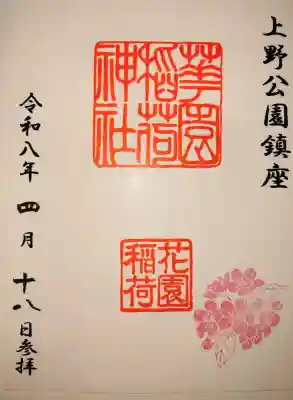 上野公園鎮座
華園
稲荷
神社
花園
稲荷
令和八年 四月 十八日参拝